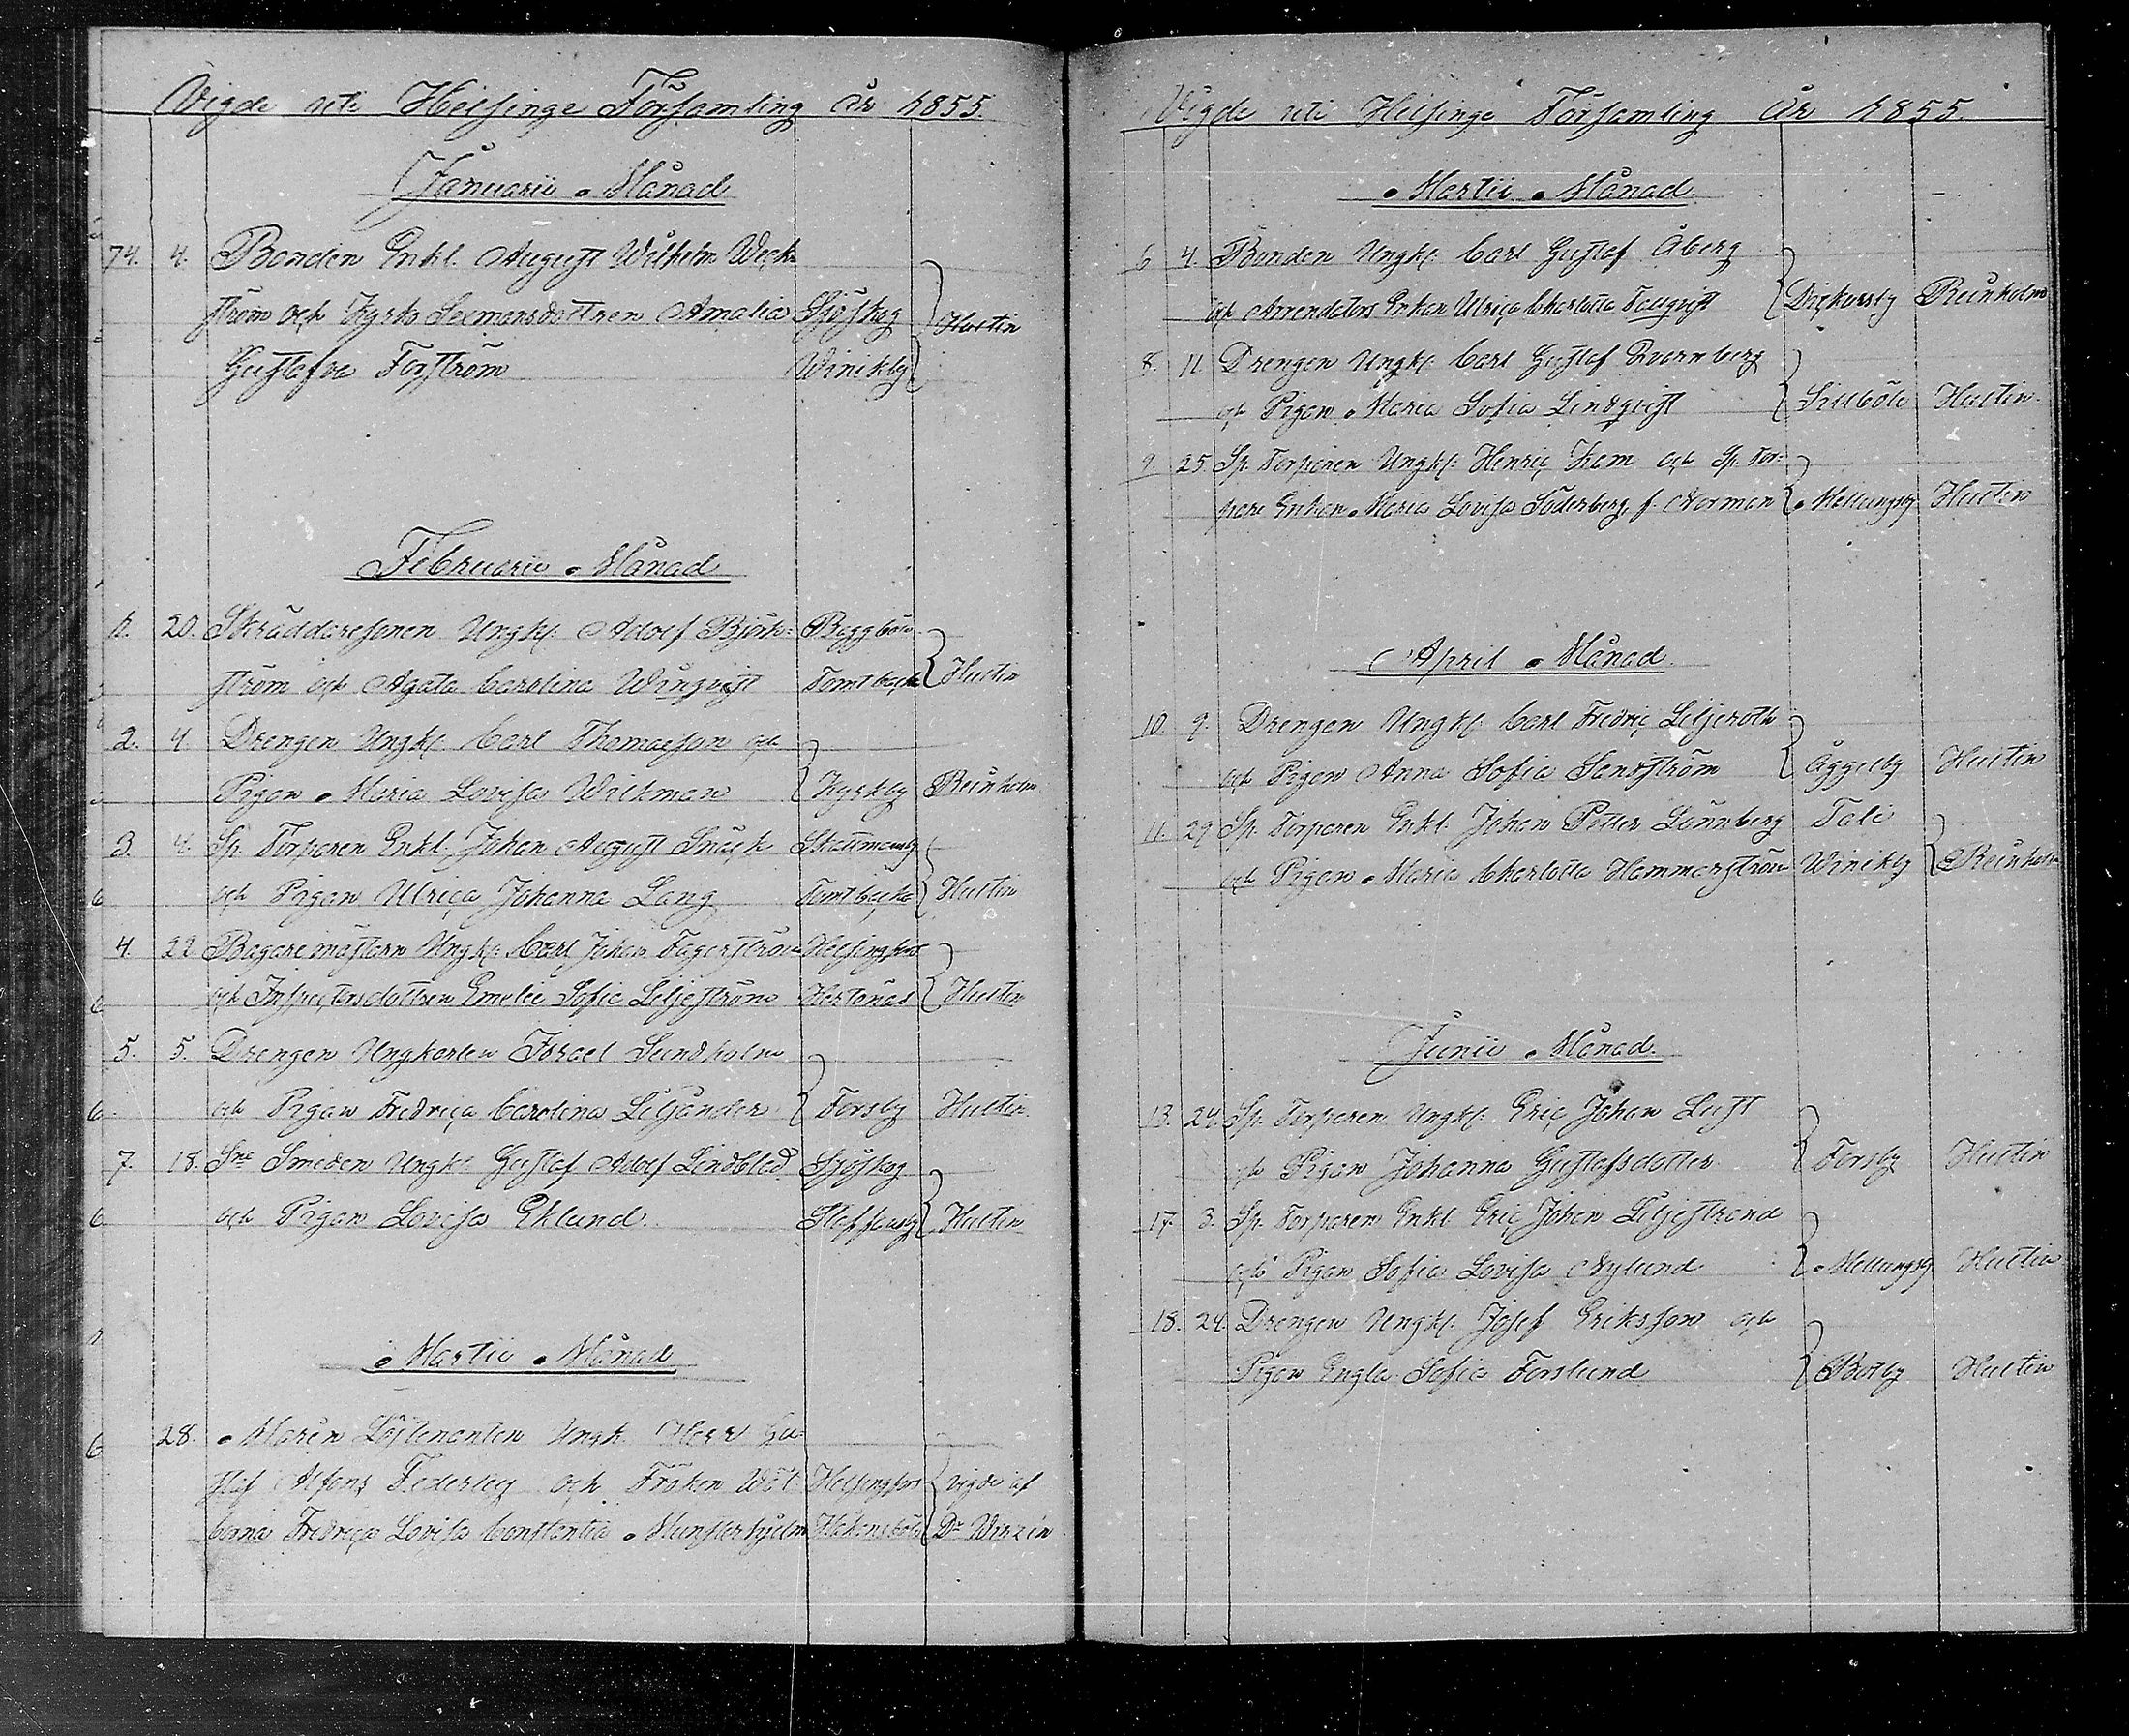 Vigde uti Helsinge Församling år 1855.
Januarii Månad
74. 4. Bonden Enkl. August Wilhelm Weck=
ström och Kyrko Sexmansdottren Amalia Sjöskog Hultin
Gustafva Forström Winikby
Februarii Månad
1. 20. Skräddaresonen Ungk. Adolf Björk= Baggböle
ström och Agata Carolina Winqvist Tomtbacka Hultin
2. 4. Drengen Ungk. Carl Thomasson och
Pigan Maria Lovisa Wickman Kyrkby Reinholm
3. 4. Sp. Torparen Enkl. Johan August Snäck Skattmansby
6 och Pigan Ulrica Johanna Lang Tomtbacka Hultin
4. 22. Bagaremästarn Ungk. Carl Johan Fagerström Helsingfors
6 och Inspectorsdottren Emelie Sofie Liljeström Hertonäs Hultin
5. 5. Drengen Ungkarlen Israel Sundholm
6. och Pigan Fredrica Carolina Liljander Forsby Hultin
7. 18. Sne Smeden Ungk. Gustaf Adolf Lindblad Sjöskog
6 och Pigan Lovisa Eklund. Staffansby Hultin
Martii Månad
6 28. Marin Löjtenanten Ungk. Herr Gu=
staf Alfons Federley och Fröken Wäl Helsingfors vigde af
borna Fredrica Lovisa Constantia Munsterhjelm Håkansböle Dr Wirzén
Vigde uti Helsinge Församling år 1855.
Martii Månad.
6 4. Bonden Ungk. Carl Gustaf Åberg
och Arrendators Enkan Ulrica Charlotta Tallqvist Dickursby Reinholm
8. 11. Drengen Ungk. Carl Gustaf Qvarnberg
och Pigan Maria Sofia Lindqvist Sillböle Hultin
9. 25. Sp. Torparen Ungk. Henric Kam och Sp. Tor=
pare Enkan Maria Lovisa Söderberg, f. Norman Mellungsby Hultin
April Månad.
10. 9. Drengen Ungk. Carl Fredric Liljeroth
och Pigan Anna Sofia Sandström Åggelby Hultin
11. 29. Sp. Torparen Enkl. Johan Petter Lönnberg Tali
och Pigan Maria Charlotta Hammarström Winikby Reinholm
Junii Månad.
13. 24. Sp. Torparen Ungk. Eric Johan Lust
och Pigan Johanna Gustafsdotter Forsby Hultin
17. 3. Sp. Torparen Enkl. Eric Johan Liljestrand
och Pigan Sofia Lovisa Nylund Mellungsby Hultin
18. 24. Drengen Ungk. Josef Eriksson och
Pigan Engla Sofia Forslund Botby Hultin